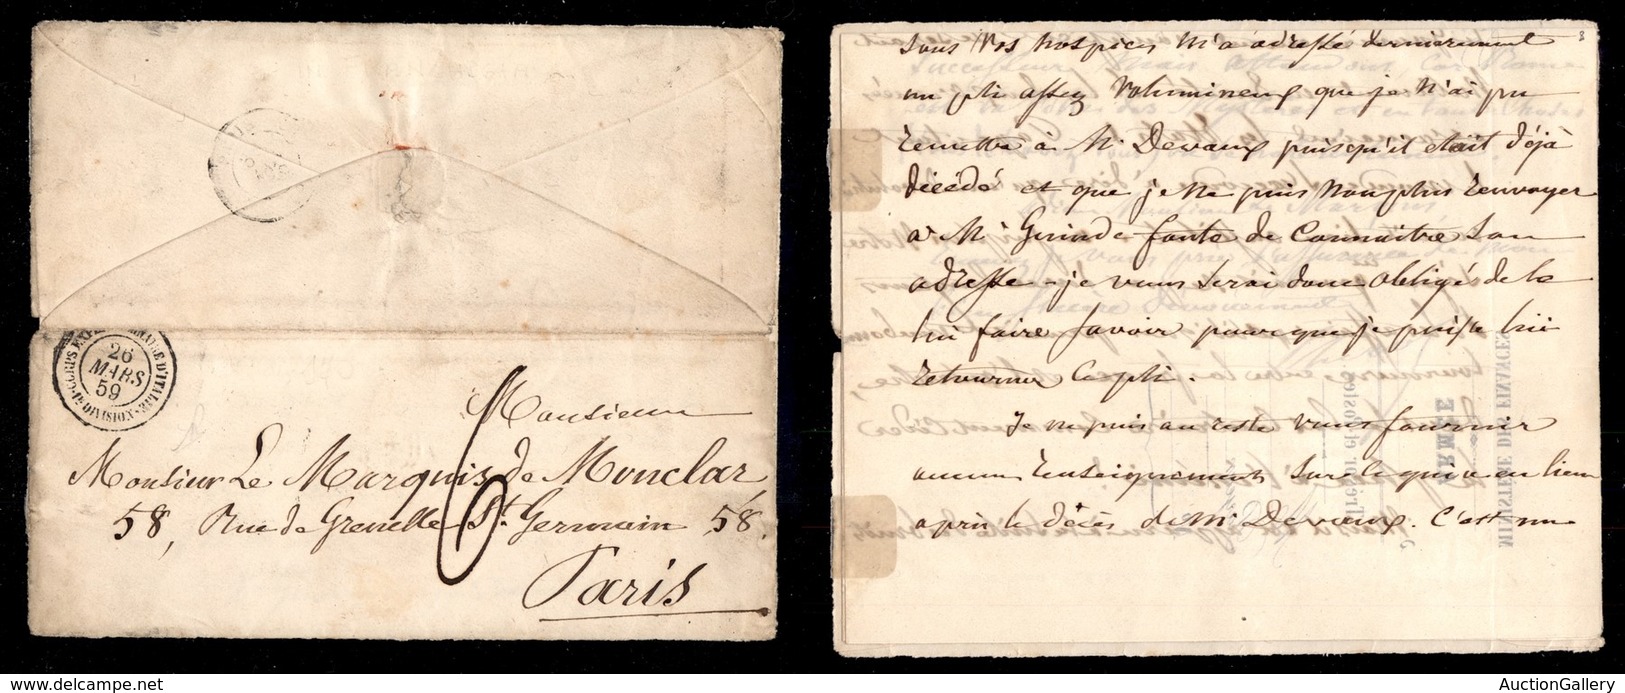 CORPS EXPEDITIONNAIRE D'ITALIE
1re DIVISION
26
MARS
59
Monsieur
Monsieur Le Marquis de Monclar
58, Rue de Grenelle St. Germain 58.
Paris
8
sous vos hospices m'a adressé dernierement
un pli assez volumineux que je n'ai pu
remettre à Mr Devaux puisqu'il etait déjà
décédé et que je ne puis non plus renvoyer
à Mr Gerinde faute de connaitre son
adresse - je vous serai donc obligé de le
lui faire savoir pour que je puisse lui
retourner ce pli.
Je ne puis au reste vous fournir
aucun renseignement sur le qui a eu lieu
après le décès de Mr Devaux. C'est un
MINISTÈRE DES FINANCES
ARMÉE
AuctionGallery